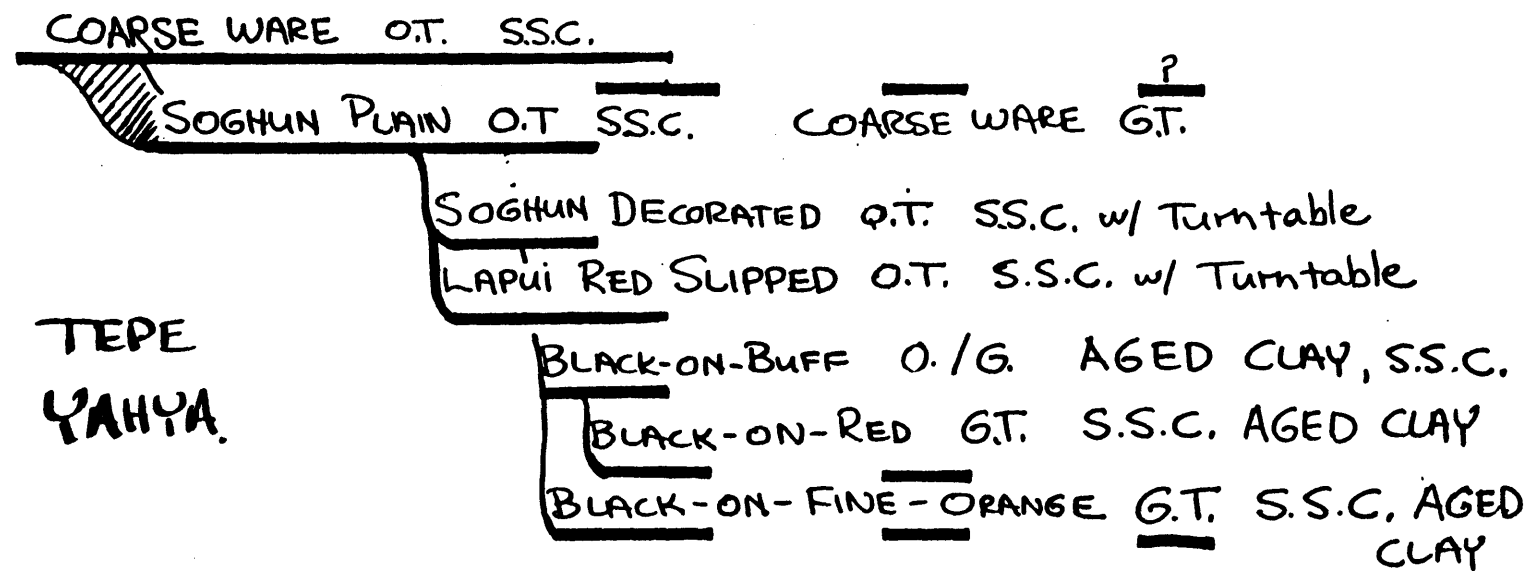 COARSE WARE O.T. S.S.C.
?
SOGHUN PLAIN O.T S.S.C. COARSE WARE G.T.
SOGHUN DECORATED O.T. S.S.C. w/ Turntable
LAPUI RED SLIPPED O.T. S.S.C. w/ Turntable
TEPE
YAHYA.
BLACK-ON-BUFF O./G. AGED CLAY, S.S.C.
BLACK-ON-RED G.T. S.S.C. AGED CLAY
BLACK-ON-FINE-ORANGE G.T. S.S.C. AGED
CLAY